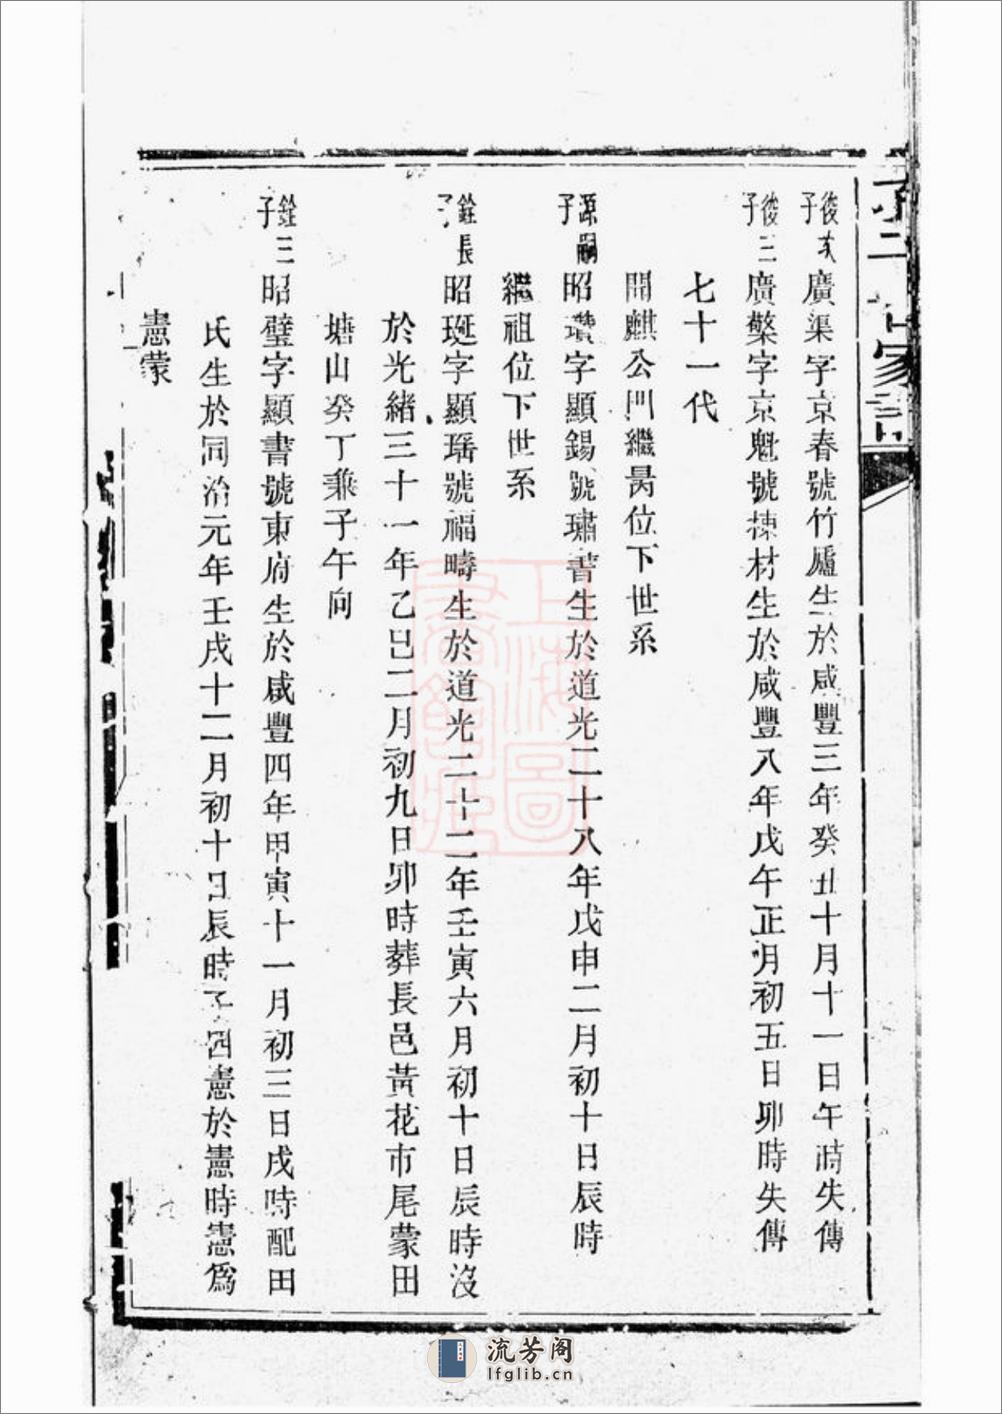 子
家
後次子廣渠字京春號竹廬生於咸豐三年癸丑十月十一日午時失傳
後三子廣檠字京魁號棟材生於咸豐八年戊午正月初五日卯時失傳
七十一代
開麒公門繼昺位下世系
源嗣子昭瓚字顯錫號璛書生於道光二十八年戊申二月初十日辰時
繼祖位下世系
銓長子昭珽字顯瑤號福疇生於道光二十二年壬寅六月初十日辰時沒
於光緒三十一年乙巳二月初九日卯時葬長邑黃花市尾蒙田
塘山癸丁兼子午向
銓三子昭璧字顯書號東府生於咸豐四年甲寅十一月初三日戌時配田
氏生於同治元年壬戌十二月初十日辰時子四憲於憲時憲爲
憲蒙
上海圖書館藏
流芳阁
lfglib.cn